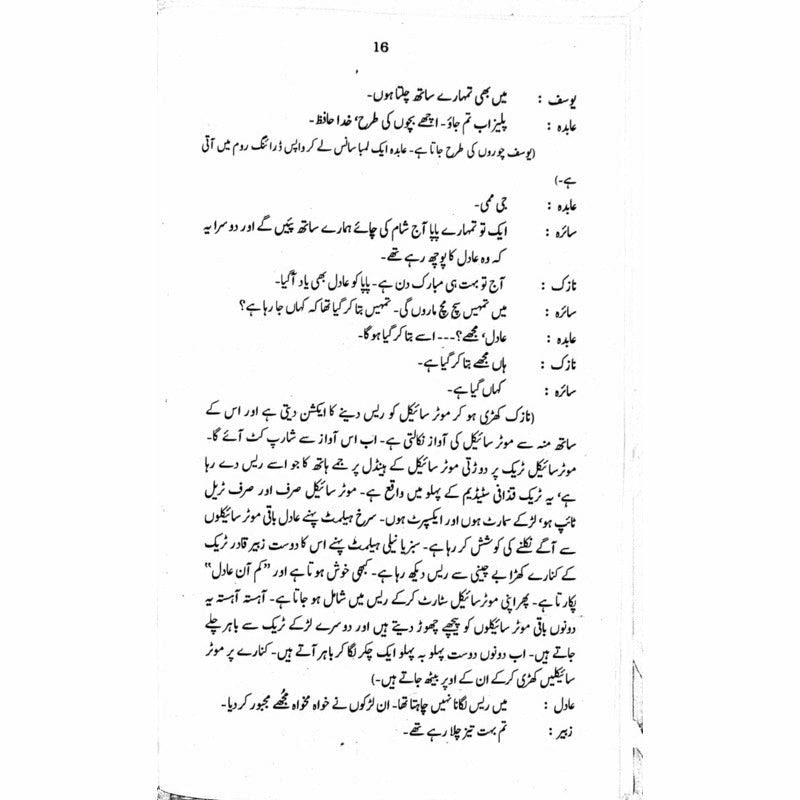 16
یوسف : میں بھی تمہارے ساتھ چلتا ہوں۔
عابدہ : پلیز اب تم جاؤ۔ اچھے بچوں کی طرح، خدا حافظ۔
(یوسف چوروں کی طرح جاتا ہے۔ عابدہ ایک لمبا سانس لے کر واپس ڈرائنگ روم میں آتی
ہے۔)
عابدہ : جی ممی۔
سائرہ : ایک تو تمہارے پاپا آج شام کی چائے ہمارے ساتھ پئیں گے اور دوسرا یہ
کہ وہ عادل کا پوچھ رہے تھے۔
نازک : آج تو بہت ہی مبارک دن ہے۔ پاپا کو عادل بھی یاد آگیا۔
سائرہ : میں تمہیں سچ مچ ماروں گی۔ تمہیں بتا کر گیا تھا کہ کہاں جا رہا ہے؟
عابدہ : عادل، مجھے؟۔۔۔ اسے بتا کر گیا ہو گا۔
نازک : ہاں مجھے بتا کر گیا ہے۔
سائرہ : کہاں گیا ہے۔
(نازک کھڑی ہو کر موٹر سائیکل کو ریس دینے کا ایکشن دیتی ہے اور اس کے
ساتھ منہ سے موٹر سائیکل کی آواز نکالتی ہے۔ اب اس آواز سے شارپ کٹ آئے گا۔
موٹر سائیکل ٹریک پر دوڑتی موٹر سائیکل کے ہینڈل پر جمے ہاتھ کا جو اسے ریس دے رہا
ہے، یہ ٹریک قذافی سٹیڈیم کے پہلو میں واقع ہے۔ موٹر سائیکل صرف اور صرف ٹریل
ٹائپ ہو، لڑکے سمارٹ ہوں اور ایکسپرٹ ہوں۔ سرخ ہیلمٹ پہنے عادل باقی موٹر سائیکلوں
سے آگے نکلنے کی کوشش کر رہا ہے۔ سبز یا نیلی ہیلمٹ پہنے اس کا دوست زبیر قادر ٹریک
کے کنارے کھڑا بے چینی سے ریس دیکھ رہا ہے۔ کبھی خوش ہوتا ہے اور ”کم آن عادل“
پکارتا ہے۔ پھر اپنی موٹر سائیکل سٹارٹ کرکے ریس میں شامل ہو جاتا ہے۔ آہستہ آہستہ یہ
دونوں باقی موٹر سائیکلوں کو پیچھے چھوڑ دیتے ہیں اور دوسرے لڑکے ٹریک سے باہر چلے
جاتے ہیں۔ اب دونوں دوست پہلو بہ پہلو ایک چکر لگا کر باہر آتے ہیں۔ کنارے پر موٹر
سائیکلیں کھڑی کرکے ان کے اوپر بیٹھ جاتے ہیں۔)
عادل : میں ریس لگانا نہیں چاہتا تھا۔ ان لڑکوں نے خواہ مخواہ مجھے مجبور کر دیا۔
زبیر : تم بہت تیز چلا رہے تھے۔